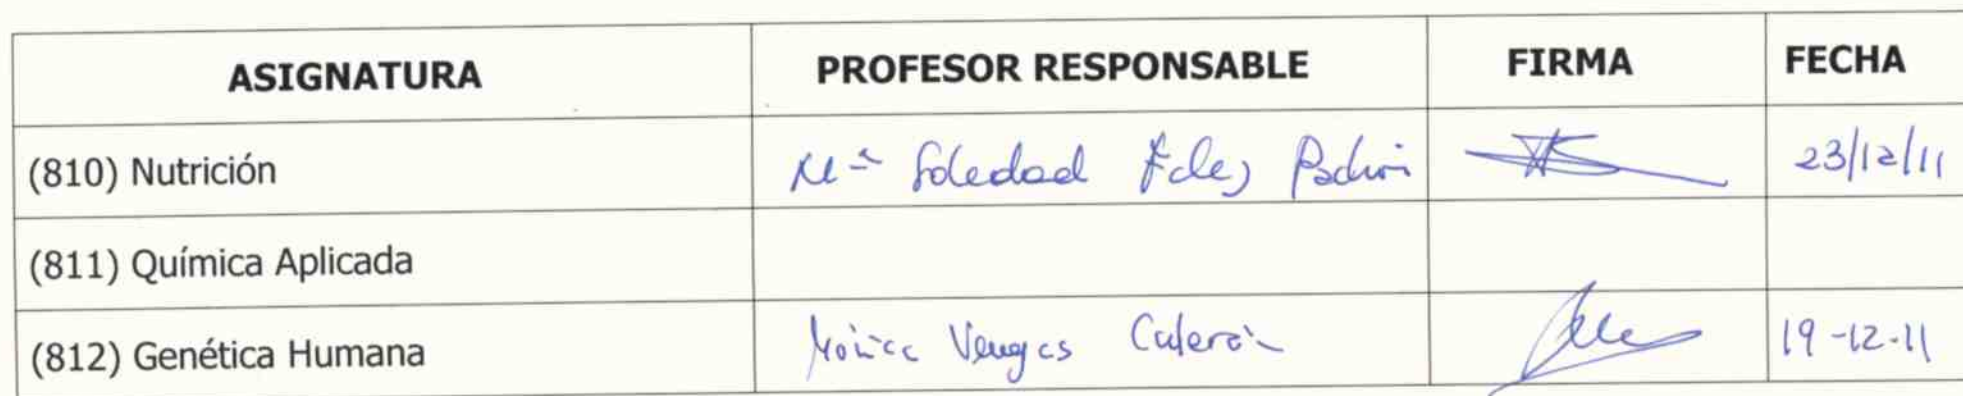 ASIGNATURA PROFESOR RESPONSABLE FIRMA FECHA
(810) Nutrición Mª Soledad Fdez Pachón 23/12/11
(811) Química Aplicada
(812) Genética Humana Mónica Venegas Calerón 19-12-11